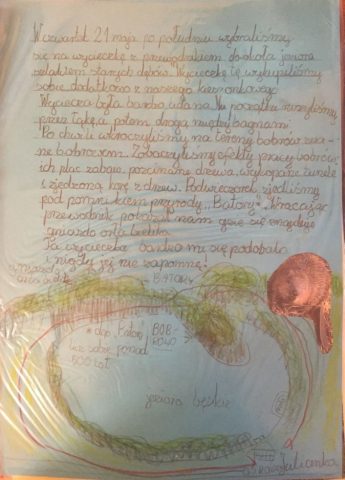 W czwartek 21 maja po południu wybraliśmy
się na wycieczkę z przewodnikiem dookoła jeziora
szlakiem starych dębów. Wycieczkę tę wykupiliśmy
sobie dodatkowo z naszego kieszonkowego.
Wycieczka była bardzo udana. Na początku ruszyliśmy
przez łąkę a potem drogą między bagnami.
Po chwili wkroczyliśmy na tereny bobrów zwa-
ne bobrowem. Zobaczyliśmy efekty pracy bobrów,
ich plac zabaw, pościnane drzewa, wykopane tunele
i zjedzoną korę z drzew. Podwieczorek zjedliśmy
pod pomnikiem przyrody „Batory". Wracając
przewodnik pokazał nam gdzie się znajduje
gniazdo orła bielika.
Ta wycieczka bardzo mi się podobała
i nigdy jej nie zapomnę!
BATORY
* dąb „Batory"
liczy sobie ponad
500 lat
BOB-
ROWO
jezioro
Julianka